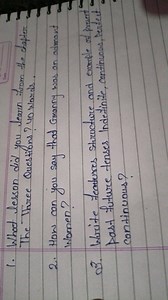 1. What lesson did you learn from the chapter
The Three Questions? in words.
2. How can you say that Granny was an
women?
3. Write tenses structure and example of present
past future tenses Indefinite, continuous, perfect
continuous?